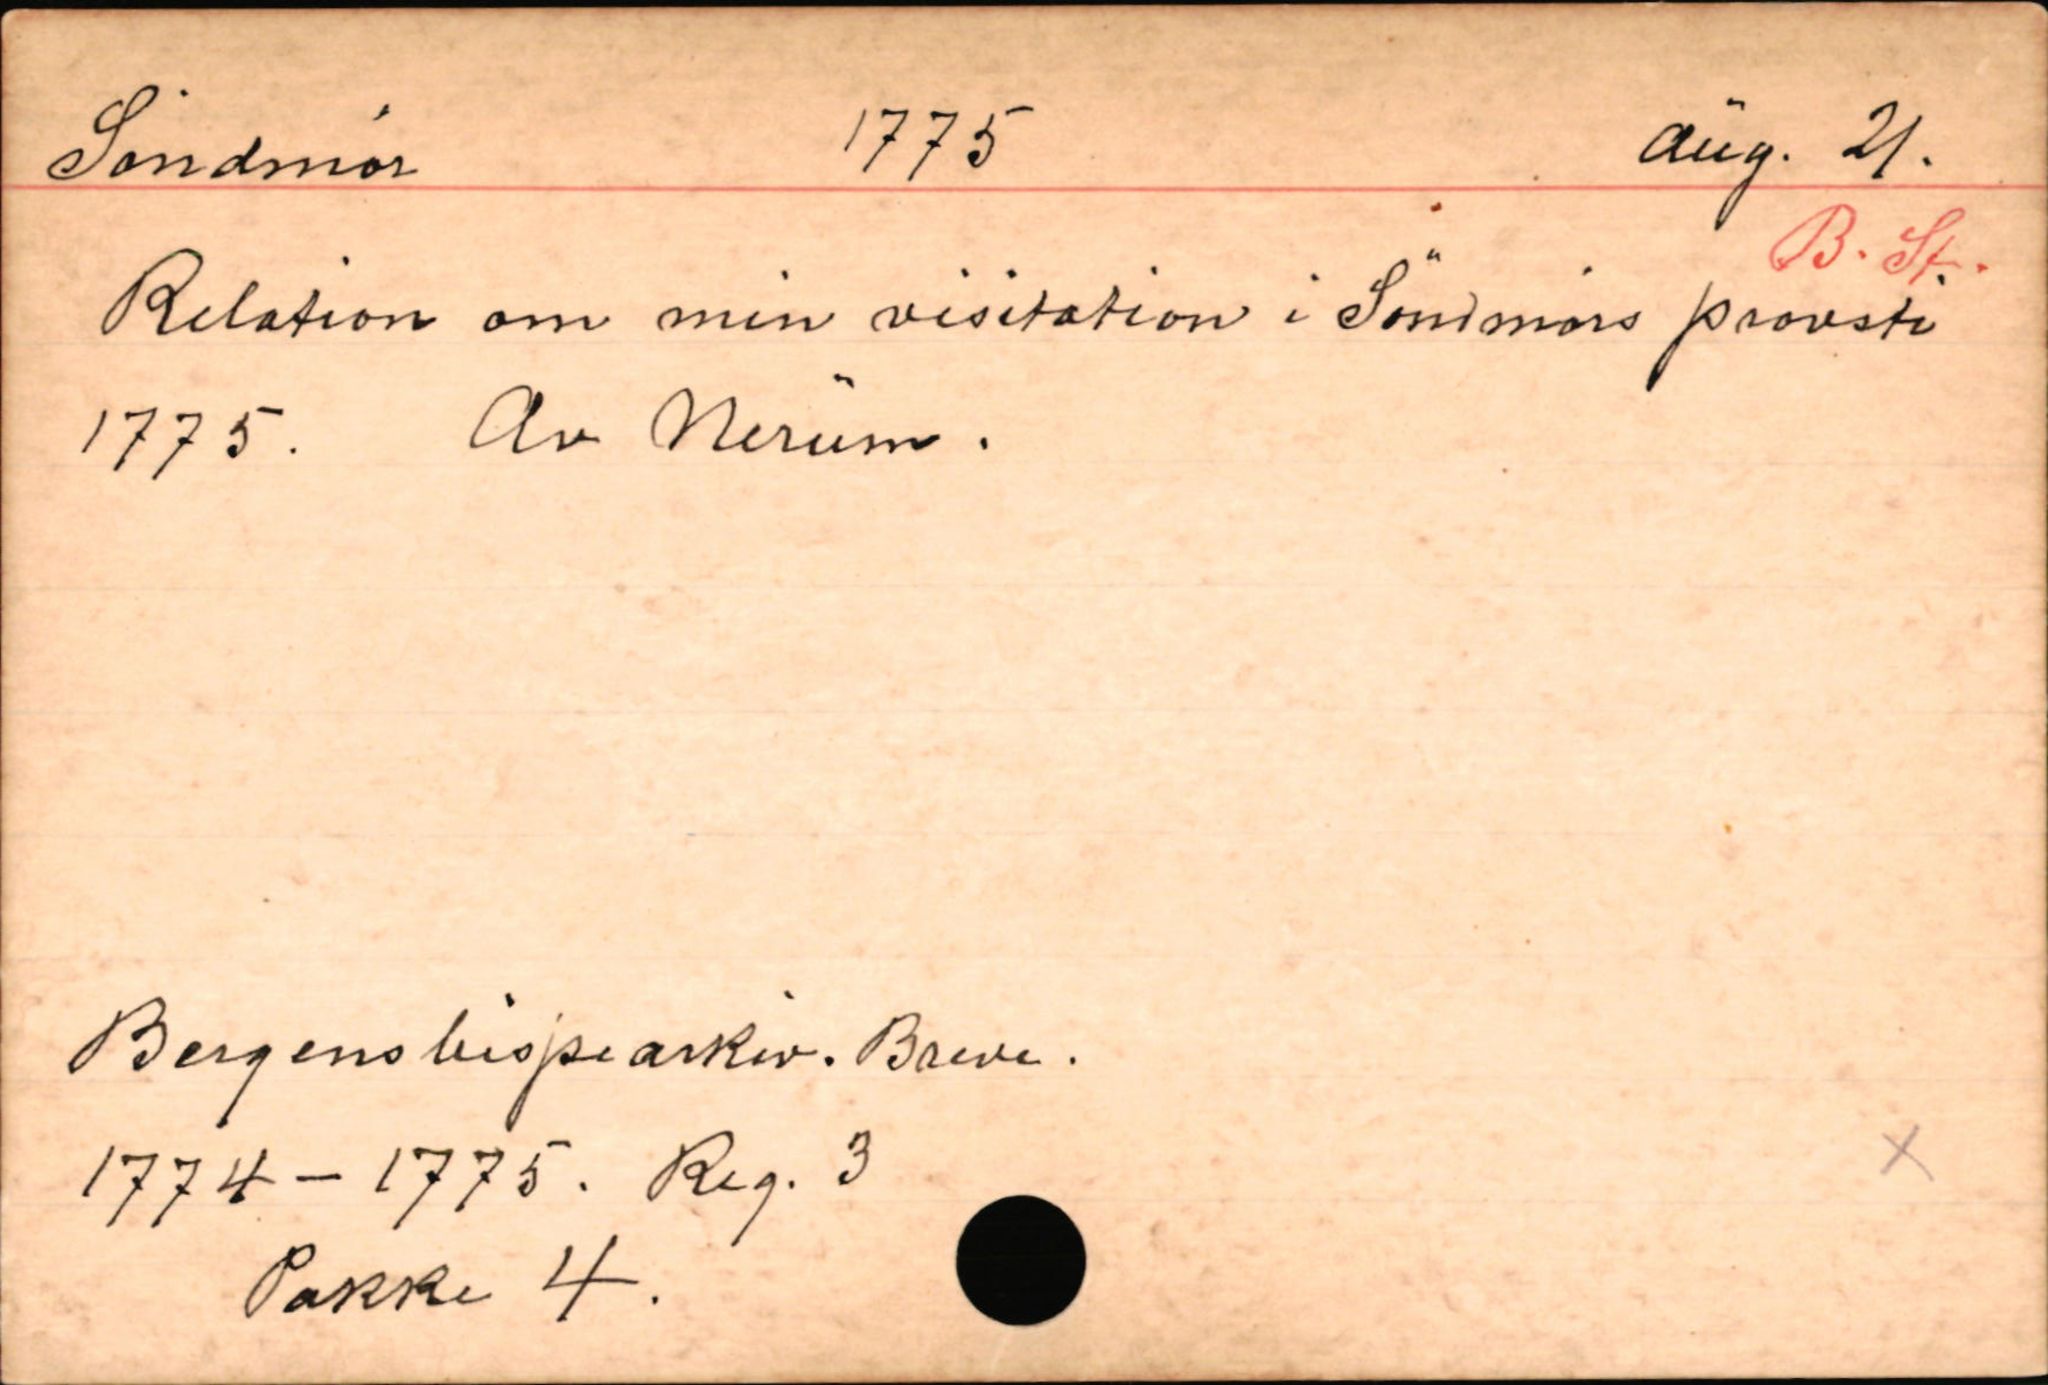 Söndmör 1775 Aug. 21.
B. St.
Relation om min visitation i Söndmörs provsti
1775. Av Nerüm.
Bergens bispearkiv. Breve.
1774 – 1775. Reg. 3
x
Pakke 4.